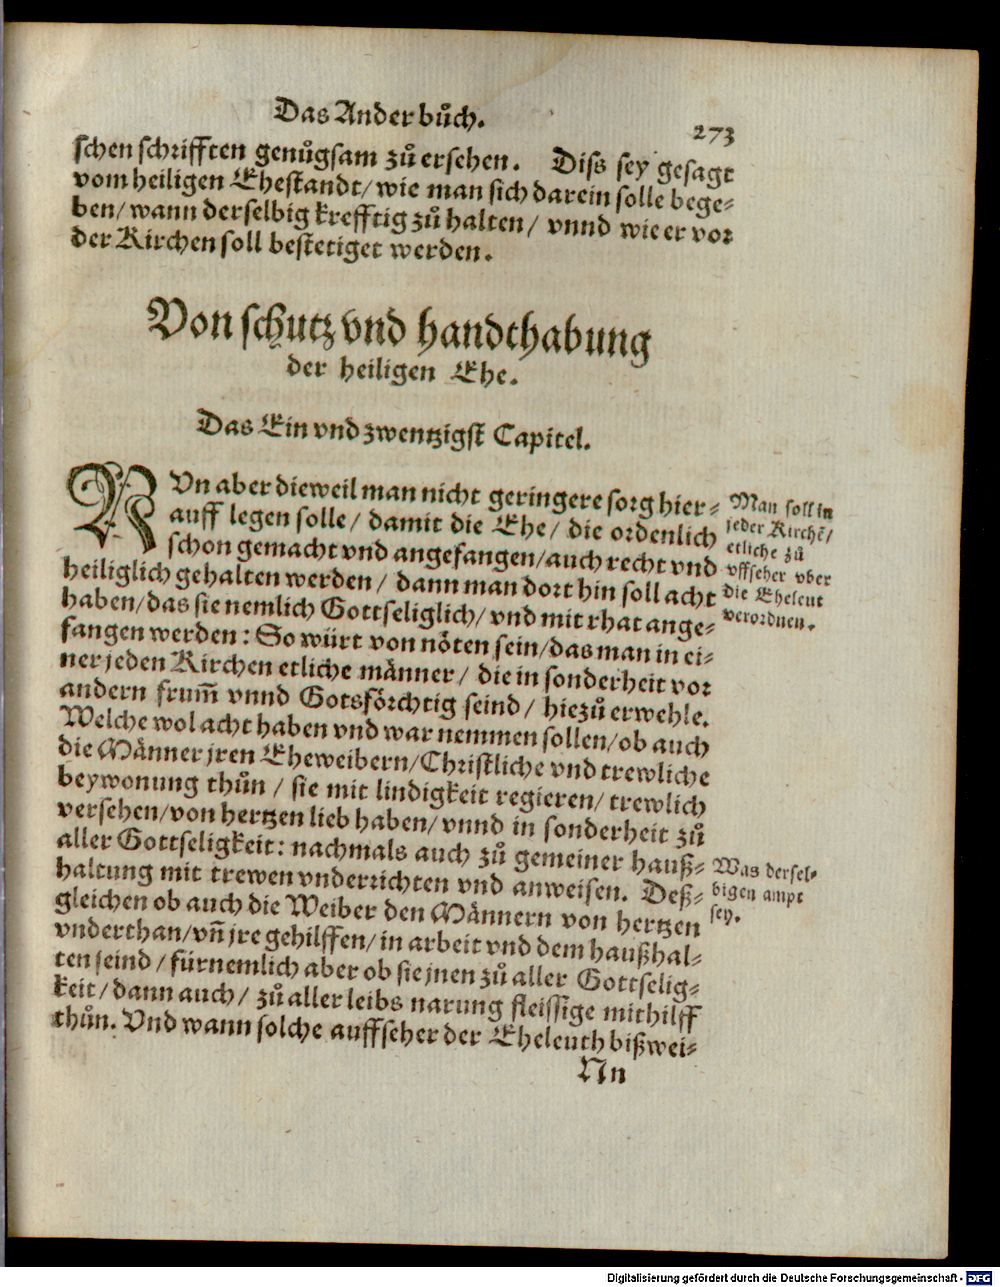 Das Ander bůch.
273
schen schrifften genůgsam zů ersehen. Diss sey gesagt
vom heiligen Ehestandt/ wie man sich darein solle bege⸗
ben/ wann derselbig krefftig zů halten/ vnnd wie er vor
der Kirchen soll bestetiget werden.
Von schutz vnd handthabung
der heiligen Ehe.
Das Ein vnd zwentzigst Capitel.
NVn aber dieweil man nicht geringere sorg hier⸗
auff legen solle/ damit die Ehe/ die ordenlich
schon gemacht vnd angefangen/ auch recht vnd
heiliglich gehalten werden/ dann man dort hin soll acht
haben/ das sie nemlich Gottseliglich/ vnd mit rhat ange⸗
fangen werden: So würt von nöten sein/ das man in ei⸗
ner jeden Kirchen etliche männer/ die in sonderheit vor
andern frum̃ vnnd Gotsförchtig seind/ hiezů erwehle.
Welche wol acht haben vnd war nemmen sollen/ ob auch
die Männer jren Eheweibern/ Christliche vnd trewliche
beywonung thůn/ sie mit lindigkeit regieren/ trewlich
versehen/ von hertzen lieb haben/ vnnd in sonderheit zů
aller Gottseligkeit: nachmals auch zů gemeiner hauß⸗
haltung mit trewen vnderrichten vnd anweisen. Deß⸗
gleichen ob auch die Weiber den Männern von hertzen
vnderthan/ vñ jre gehilffen/ in arbeit vnd dem haußhal⸗
ten seind/ fürnemlich aber ob sie jnen zů aller Gottselig⸗
keit/ dann auch/ zů aller leibs narung fleissige mithilff
thůn. Vnd wann solche auffseher der Eheleuth bißwei⸗
Nn
Man soll in
jeder Kirchē/
etliche zů
vffseher vber
die Eheleut
verordnen.
Was dersel⸗
bigen ampt
sey.
Digitalisierung gefördert durch die Deutsche Forschungsgemeinschaft - DFG